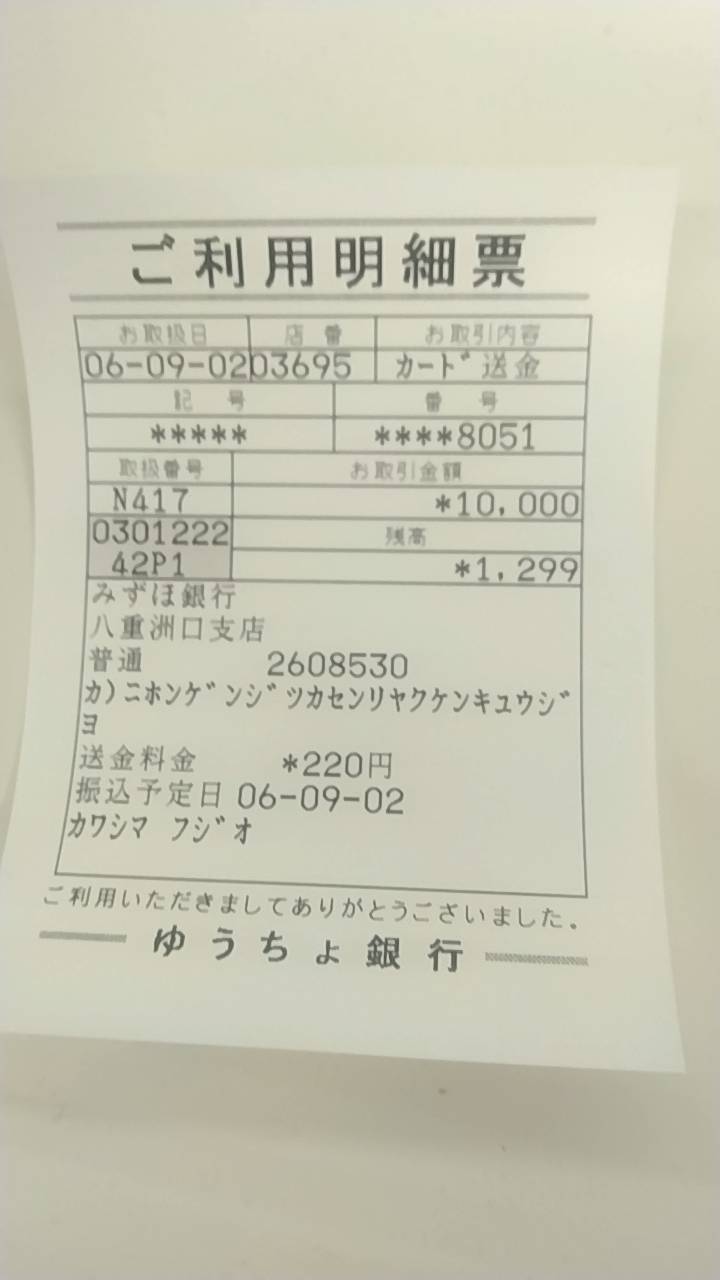 ご利用明細票
お取扱日 店番 お取引内容
06-09-02 03695 カード送金
記号 番号
***** ****8051
取扱番号 お取引金額
N417 *10,000
0301222 残高
42P1 *1,299
みずほ銀行
八重洲口支店
普通 2608530
カ)ニホンゲンジツカセンリヤクケンキユウジ
ヨ
送金料金 *220円
振込予定日 06-09-02
カワシマ フジオ
ご利用いただきましてありがとうございました。
ゆうちょ銀行